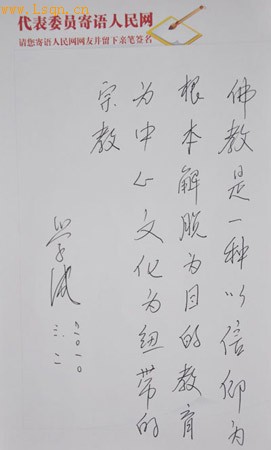 代表委员寄语人民网
请您寄语人民网网友并留下亲笔签名
佛教是一种以信仰为
根本解脱为目的教育
为中心文化为纽带的
宗教
学诚
二〇一〇
三.二